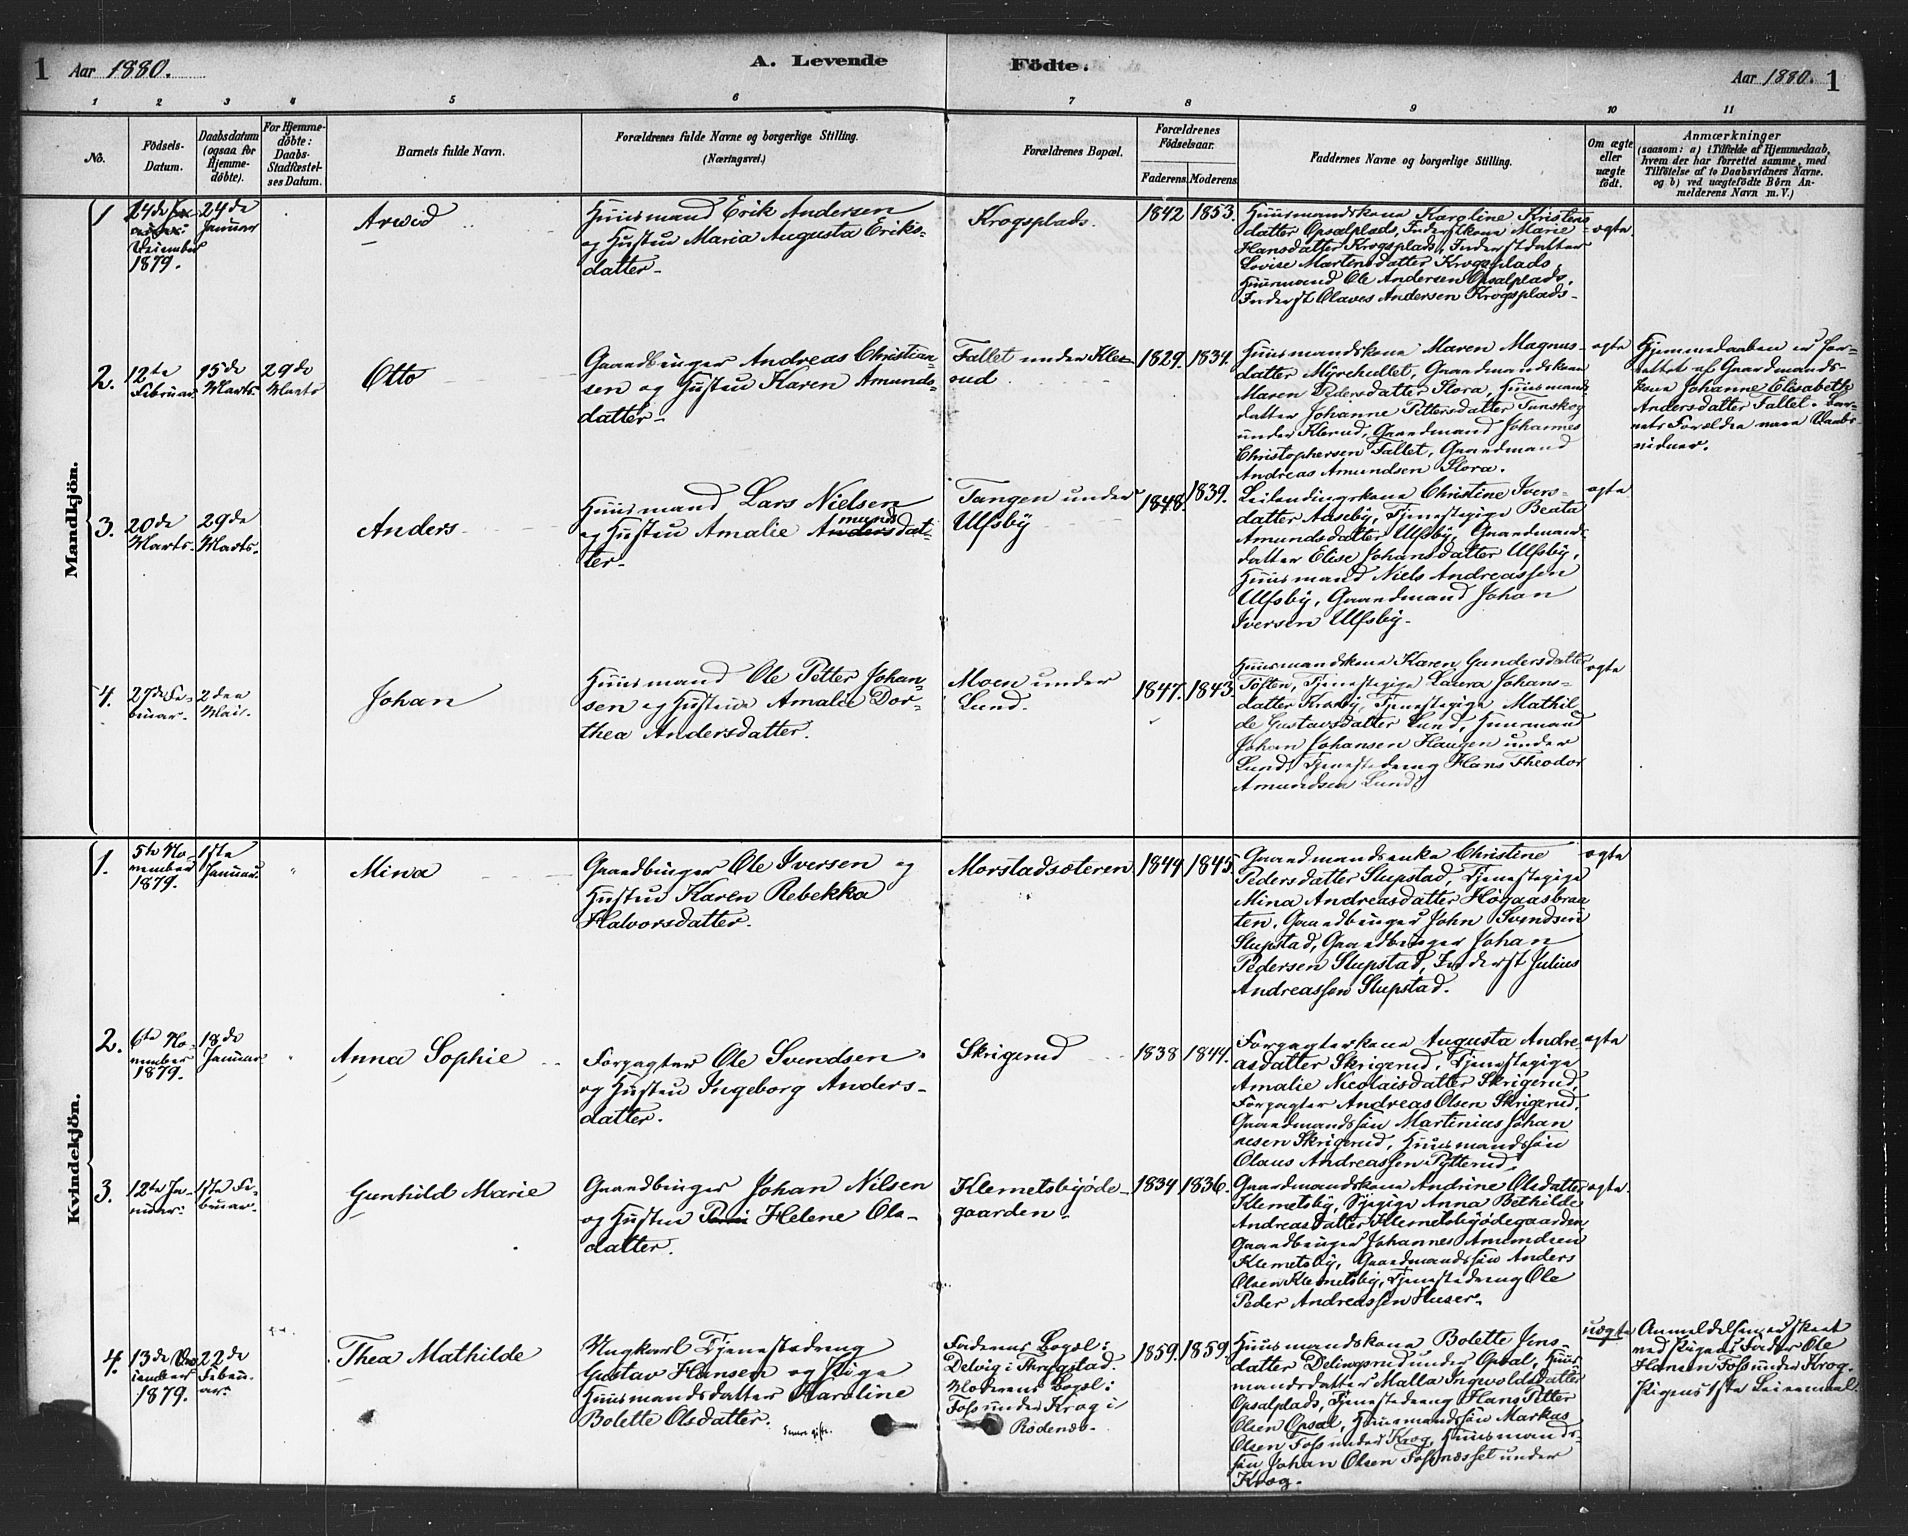 1 Aar 1880.
A. Levende Födte.
Aar 1880. 1
1 2 3 4 5 6 7 8 9 10 11
No.
Födsels-
Datum.
Daabsdatum
(ogsaa for
Hjemme-
döbte).
For Hjemme-
döbte:
Daabs-
Stadfæstel-
ses Datum.
Barnets fulde Navn.
Forældrenes fulde Navne og borgerlige Stilling.
(Næringsvei.)
Forældrenes Bopæl.
Forældrenes
Födselsaar.
Faderens. Moderens.
Faddernes Navne og borgerlige Stilling.
Om ægte
eller
uægte
födt.
Anmærkninger
(saasom: a) i Tilfælde af Hjemmedaab,
hvem der har forrettet samme, med
Tilföielse af to Daabsvidners Navne.
og b) ved uægtefödte Börn An-
melderens Navn m. V.)
Mandkjön.
1
24de
December
1879.
24de
Januar
Arwid
Huusmand Erik Andersen
og Hustru Maria Augusta Eriks-
datter.
Krogsplads.
1842 1853.
Huusmandskone Karoline Kristens
datter Opsalplads, Inderstkone Marie
Hansdatter Krogsplads, Inderstdatter
Lovise Martinsdatter Krogsplads,
Huusmand Ole Andersen Opsalplads,
Inderst Olaves Andersen Krogsplads.
ægte.
2.
12te
Februar.
15de
Marts.
29de
Marts
Otto
Gaardbruger Andreas Christian
sen og Hustru Karen Amunds-
datter.
Fallet under Kle-
rud.
1829. 1834.
Huusmandskone Maren Magnus-
datter Myrehellet, Gaardmandskone
Maren Pedersdatter Slora, Huusmands
datter Johanne Pettersdatter Tunskog
under Klerud, Gaardmand Johannes
Christophersen Fallet, Gaardmand
Andreas Amundsen Slora.
ægte
Hjemmedaaben er for-
rettet af Gaardmands-
kone Johanne Elisabeth
Andersdatter Fallet. Bar-
nets Forældre vare Daabs
vidner.
3.
20de
Marts.
29de
Marts.
Anders
Huusmand Lars Nielsen
munds
og Hustru Amalie Andersdat-
ter.
Tangen under
Ulfsby
1848. 1839.
Leilændingskone Christine Ivers-
datter Aaseby, Tjenestepige Beata
Amundsdatter Ulfsby, Gaardmands-
datter Elise Johansdatter Ulfsby,
Huusmand Niels Andreassen
Ulfsby, Gaardmand Johan
Iversen Ulfsby.
ægte
4.
27de Fe-
bruar.
2den
Mai.
Johan
Huusmand Ole Petter Johan-
sen og Hustru Amalie Dor-
thea Andersdatter.
Moen under
Lund.
1847. 1843.
Huusmandskone Karen Gundersdatter
Toften, Tjenestepige Laura Johans-
datter Krosby, Tjenestepige Mathil
de Gustavsdatter Lund, Huusmand
Johan Johansen Haugen under
Lund, Tjenestedreng Hans Theodor
Amundsen Lund.
ægte
Kvindekjön.
1.
5te No-
vember
1879.
1ste
Januar.
"
Mina
Gaardbruger Ole Iversen og
Hustru Karen Rebekka
Halvorsdatter.
Morstadsæteren
1844 1845.
Gaardmandsenke Christine
Pedersdatter Slupstad, Tjenestepige
Mina Andreasdatter Høgaasbraa
ten, Gaardbruger John Svendsen
Slupstad, Gaardbruger Johan
Pedersen Slupstad, Inderst Julius
Andreassen Slupstad.
ægte
2.
6te No-
vember
1879.
18de
Januar
"
Anna Sophie
Forpagter Ole Svendsen
og Hustru Ingeborg Anders-
datter.
Skrigerud
1838 1844.
Forpagterkone Augusta Andre
asdatter Skrigerud, Tjenestepige
Amalie Nicolaisdatter Skrigerud,
Forpagter Andreas Olsen Skrigerud,
Gaardmandssøn Martinius Johan
nesen Skrigerud, Huusmandssøn
Olaus Andreassen Pytterud.
ægte
3.
12te Ja-
nuar.
1ste Fe-
bruar.
Gunhild Marie
Gaardbruger Johan Nilsen
og Hustru Helene Ols-
datter.
Klemetsbyøde-
gaarden.
1834 1836.
Gaardmandskone Andrine Olsdatter
Klemetsby, Sypige Anna Bethilde
Andreasdatter Klemetsbyødegaarden
Gaardbruger Johannes Amundsen
Klemetsby, Gaardmandssøn Anders
Olsen Klemetsby, Tjenestedreng Ole
Peder Andreassen Huser.
ægte.
4.
13de De-
cember
1879.
22de
Febru-
ar.
Thea Mathilde
Ungkarl Tjenestedreng
Gustav Hansen og Pige
Huusmandsdatter Karoline
Bolette Olsdatter.
Senere gifte.
Faderens Bopæl:
Delvig i Trygstad.
Moderens Bopæl:
Foss under Krog i
Rödenæs.
1859. 1859.
Huusmandskone Bolette Jens
datter Delingsrud under Opsal, Huus
mandsdatter Malla Ingvoldsdatter
Opsalplads, Tjenestedreng Hans Petter
Olsen Opsal, Huusmandssøn Markus
Olsen Foss under Krog, Huusmands-
søn Johan Olsen Fossnæsset under
Krog.
uægte
Anmeldelsen er skeet
ved Pigens Fader Ole
Hansen Foss under Krog.
Pigens 1ste Leiermaal.